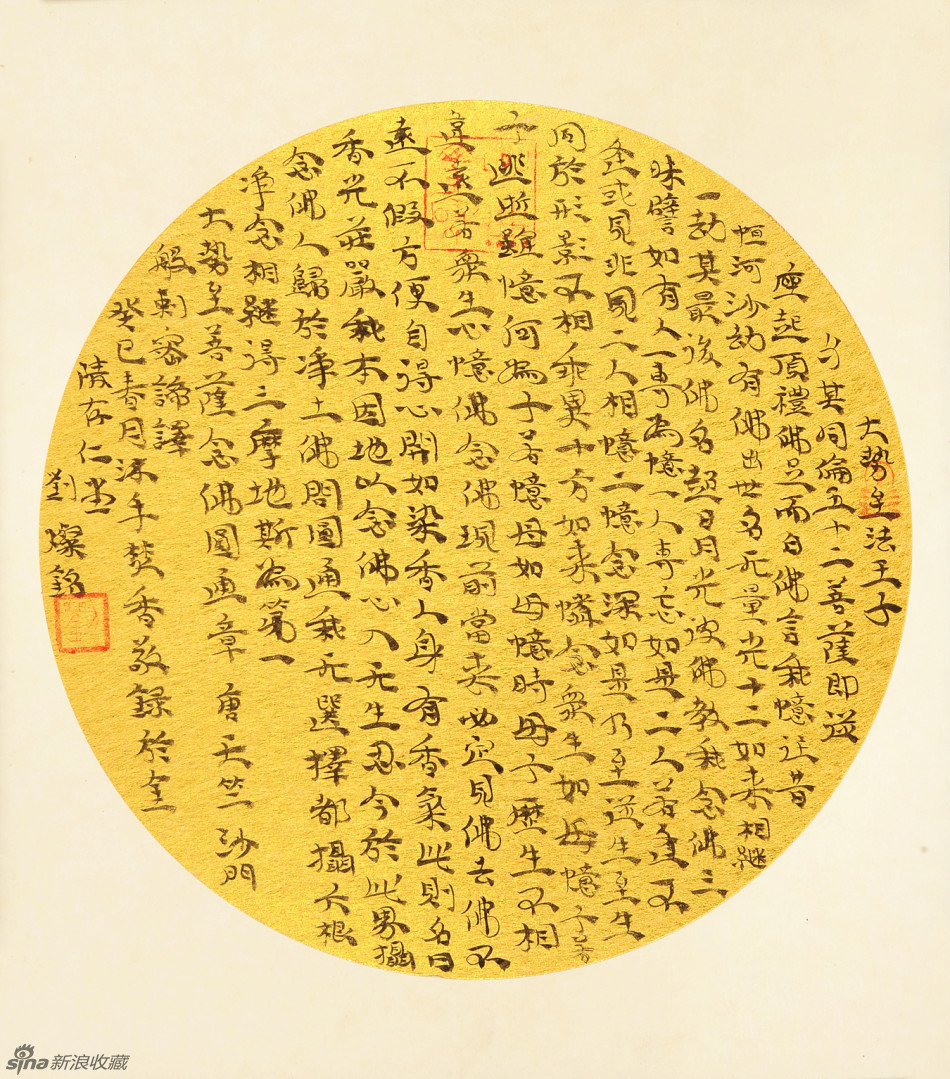 大勢至法王子
与其同倫五十二菩薩即從
座起頂禮佛足而白佛言我憶往昔
恒河沙劫有佛出世名无量光十二如来相継
一劫其最後佛名超日月光彼佛教我念佛三
昧譬如有人一專為憶一人專忘如是二人若逢不
逢或見非見二人相憶二憶念深如是乃至從生至生
同於形影不相乖異十方如来憐念衆生如母憶子若
子逃逝雖憶何為子若憶母如母憶時母子歷生不相
違遠若衆生心憶佛念佛現前當来必定見佛去佛不
遠不假方便自得心開如染香人身有香氣此則名曰
香光莊嚴我本因地以念佛心入无生忍今於此界攝
念佛人歸於淨土佛問圓通我无選擇都攝六根
淨念相継得三摩地斯為第一
大勢至菩薩念佛圓通章 唐天竺沙門
般剌密諦譯
癸巳春月沐手焚香敬錄於金
陵存仁堂
劉燦銘
sina新浪收藏